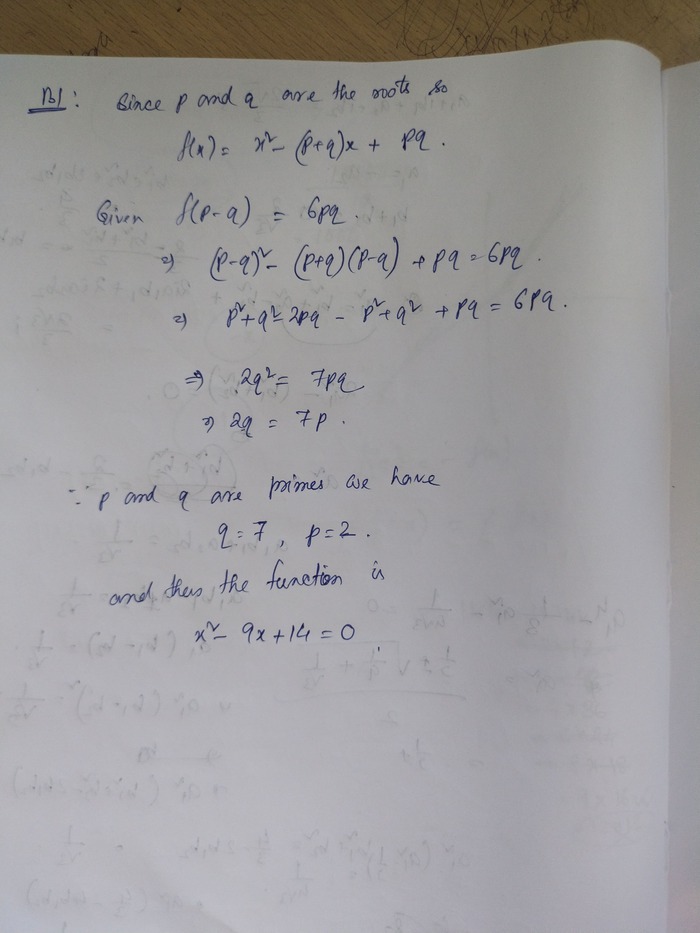 B1: Since p and q are the roots so
f(x) = x² - (p+q)x + pq.
Given f(p-q) = 6pq.
⇒ (p-q)² - (p+q)(p-q) + pq = 6pq.
⇒ p²+q²-2pq - p²+q² + pq = 6pq.
⇒ 2q² = 7pq
⇒ 2q = 7p.
∵ p and q are primes we have
q=7, p=2.
and thus the function is
x² - 9x + 14 = 0